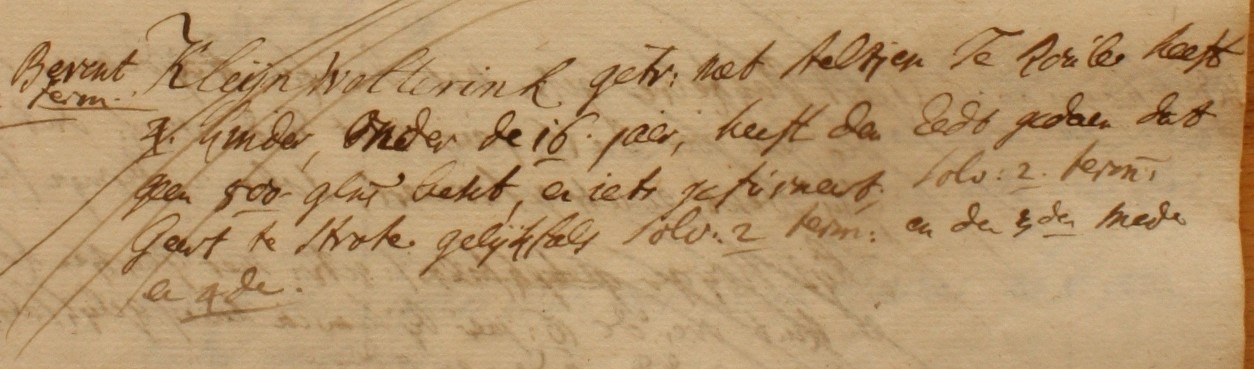 Berent Kleijn Wolterink getr: met Aeltjen Te heeft
term.
4. kinder, onder de 16. jaer, heeft den Eedt gedaen dat
geen 500- glns besit, en iets gefurneert. solv: 2. term:
Geert te Strote gelijkfals solv: 2 term: en den 3den mede
en 4de.